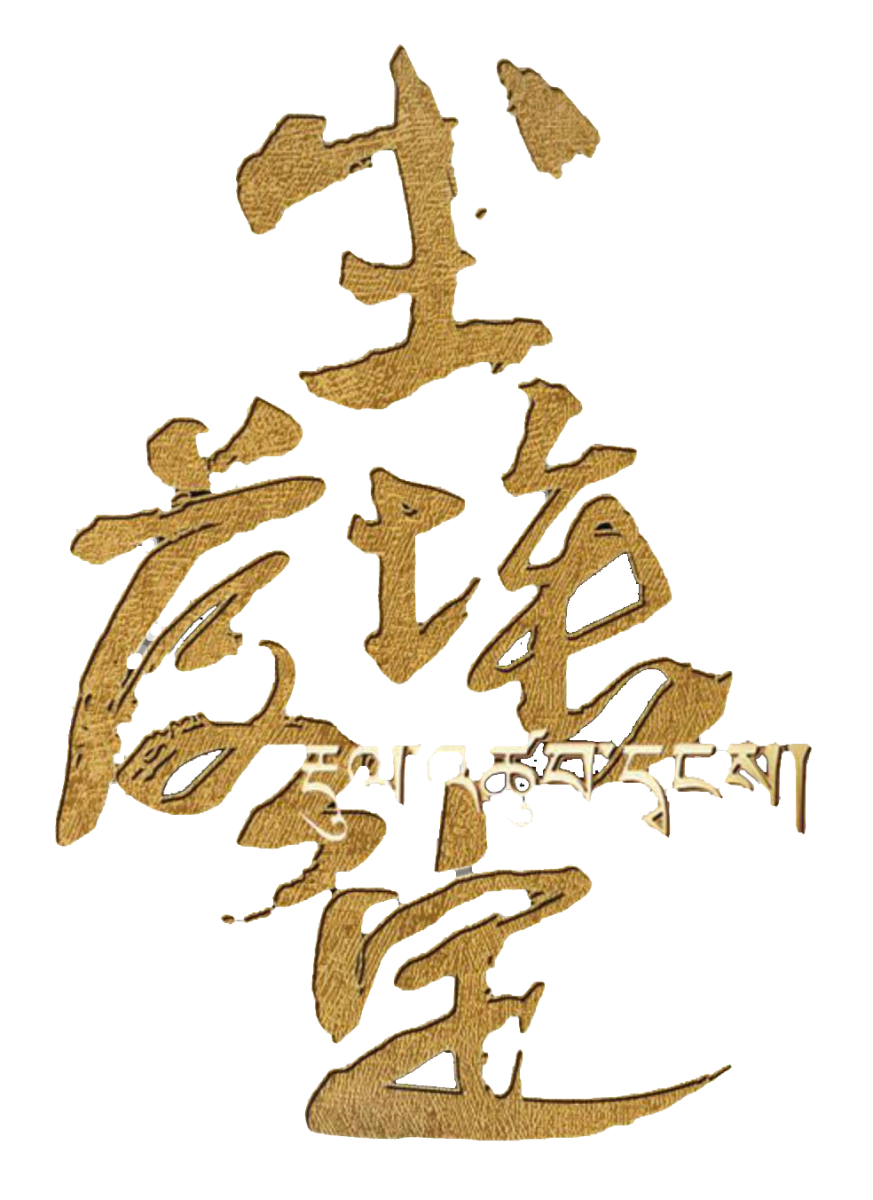 尘埃落定
རྡུལ་འཚུབ་དྭངས།